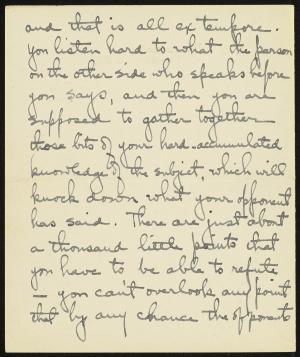 and that is all ex tempore.
You listen hard to what the person
on the other side who speaks before
you says, and then you are
supposed to gather together
those bits of your hard-accumulated
knowledge of the subject, which will
knock down what your opponent
has said. There are just about
a thousand little points that
you have to be able to refute
— you can't overlook any point
that by any chance the opponents